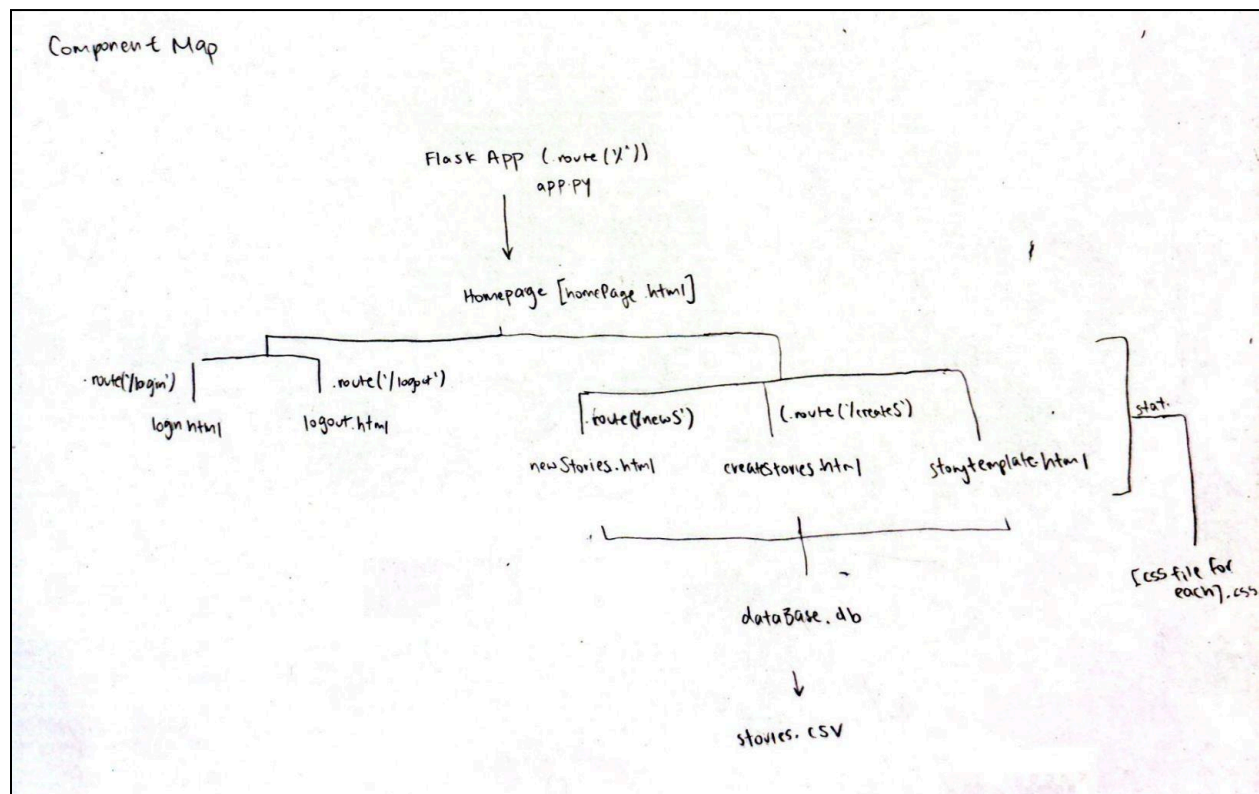 Component Map
Flask App (.route('/'))
app.py
Homepage [homePage.html]
.route('/login')
.route('/logout')
login.html
logout.html
.route('/newS')
(.route('/createS')
newStories.html
createStories.html
storytemplate.html
stat.
[css file for
each].css
dataBase.db
stories.csv